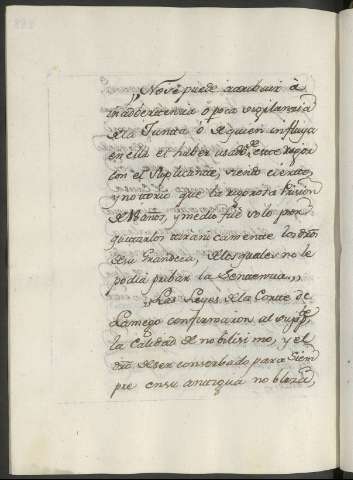 „No se puede atribuir à
inadbertencia ó poca vigilanzia
de la Junta, ó de quien influya
en ella el haber usado de este rigor
con el Suplicante, siendo cierto,
y notorio que la rigorosa Prision
de 18 años, y medio fué solo por
quitarlos tiranicamente los dros
de su Grandeza, de los quales no le
podía pribar la Sentencia„
„Las Leyes de la Corte de
Lamego confirmaron al supte
la calidad de nobilisimo, y el
dro de ser conserbado para siem
pre en su antigua nobleza,